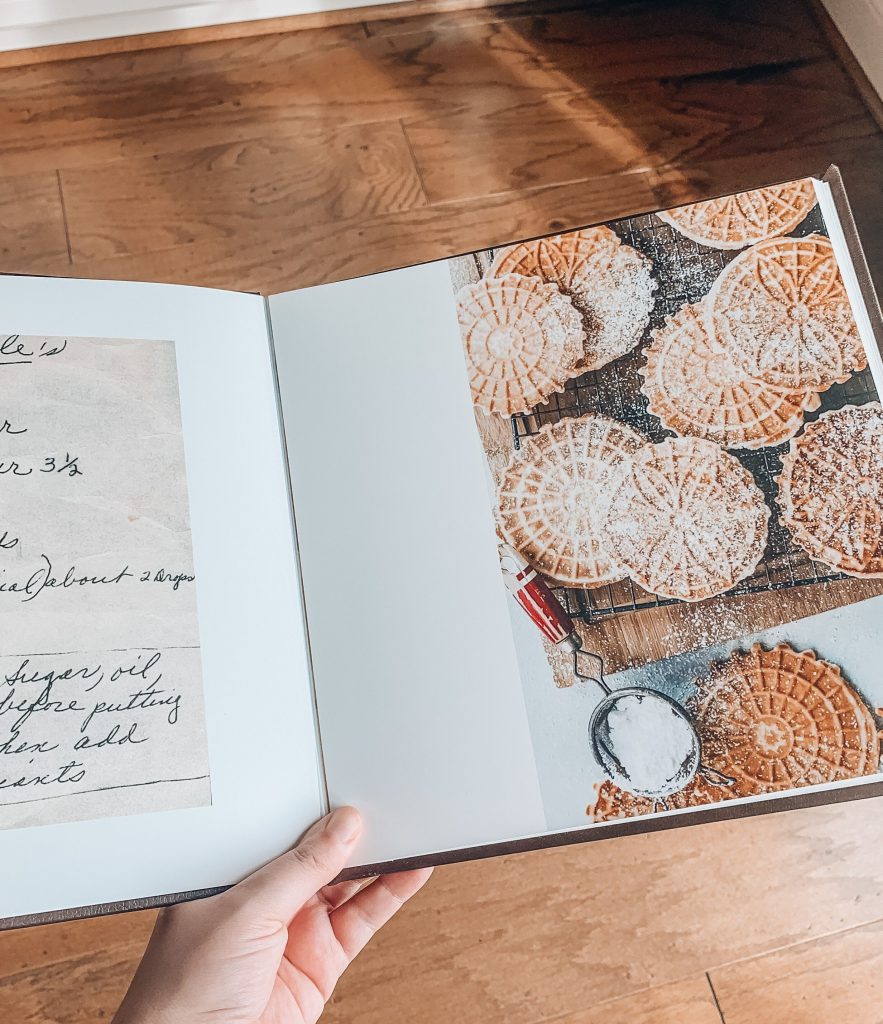 le's
r
ur 3½
s
ial) about 2 Drops
Sugar, oil,
before putting
hen add
iants